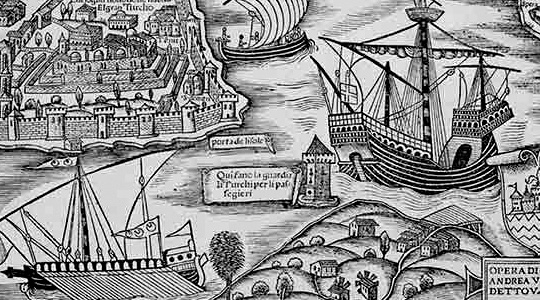 Elgran Turcho
porta de lisole
Qui fano la guardia
li Turchi per li pas
segieri
OPERA DI
ANDREA V
DETTO VA